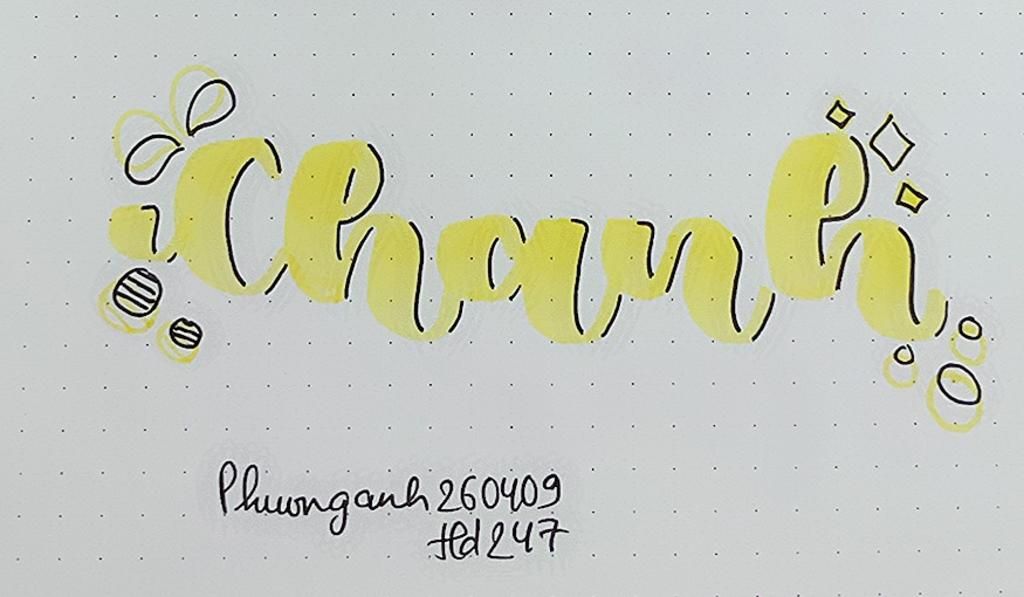 Chanh
Phuonganh260409
Hd247